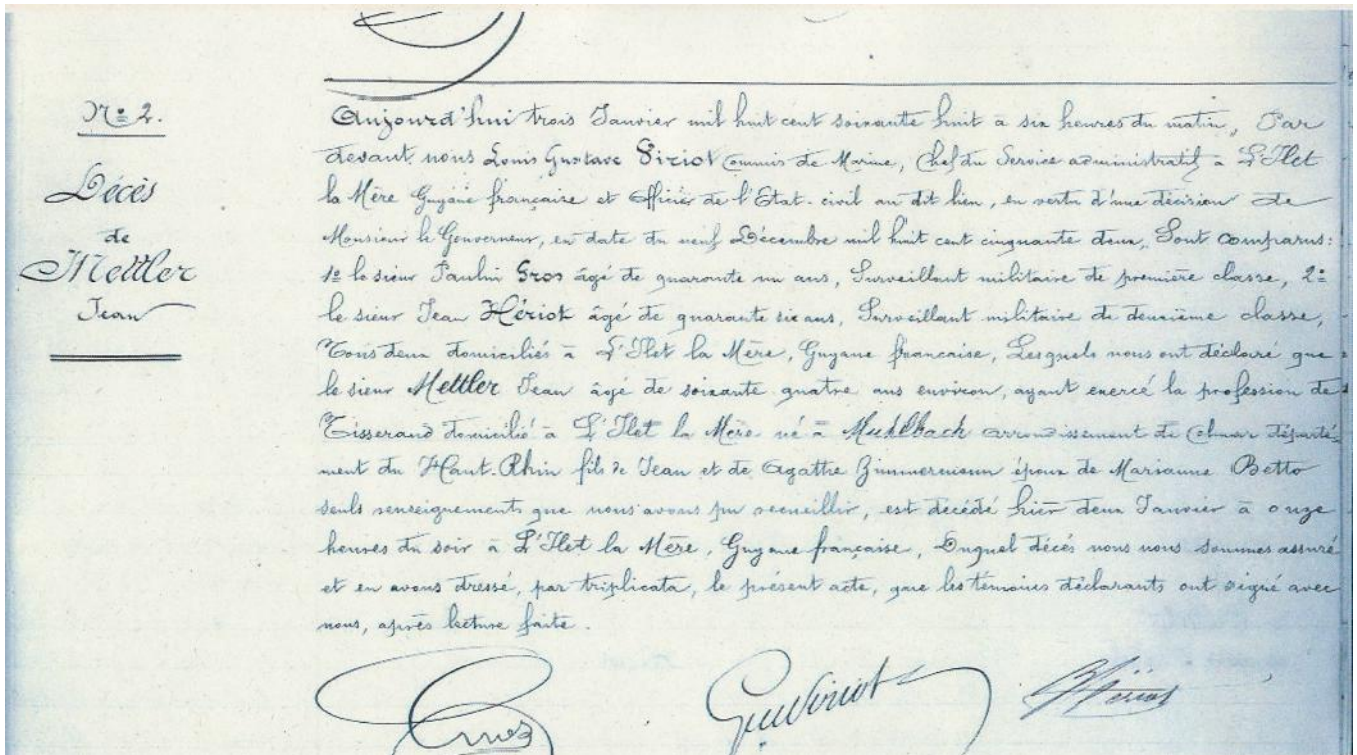 N° 2.
Décès
de
Mettler
Jean
Aujourd'hui trois Janvier mil huit cent soixante huit à six heures du matin, Par
devant nous Louis Gustave Viriot Commis de Marine, Chef du Service administratif à L'Ilet
la Mère Guyane française et officier de l'Etat-civil au dit lieu, en vertu d'une décision de
Monsieur le Gouverneur, en date du neuf Décembre mil huit cent cinquante deux, Sont comparus:
1° le sieur Paulin Gros âgé de quarante un ans, Surveillant militaire de première classe, 2°
le sieur Jean Hériot âgé de quarante six ans, Surveillant militaire de deuxième classe,
Tous deux domiciliés à L'Ilet la Mère, Guyane française, Lesquels nous ont déclaré que
le sieur Mettler Jean âgé de soixante quatre ans environ, ayant exercé la profession de
Tisserand domicilié à L'Ilet la Mère né à Muhlbach arrondissement de Colmar départe-
ment du Haut-Rhin fils de Jean et de Agathe Zimmermann époux de Marianne Betto
seuls renseignements que nous avons pu recueillir, est décédé hier deux Janvier à onze
heures du soir à L'Ilet la Mère, Guyane française, Duquel décès nous nous sommes assuré
et en avons dressé, par triplicata, le présent acte, que les témoins déclarants ont signé avec
nous, après lecture faite.
Gros Viriot Hériot